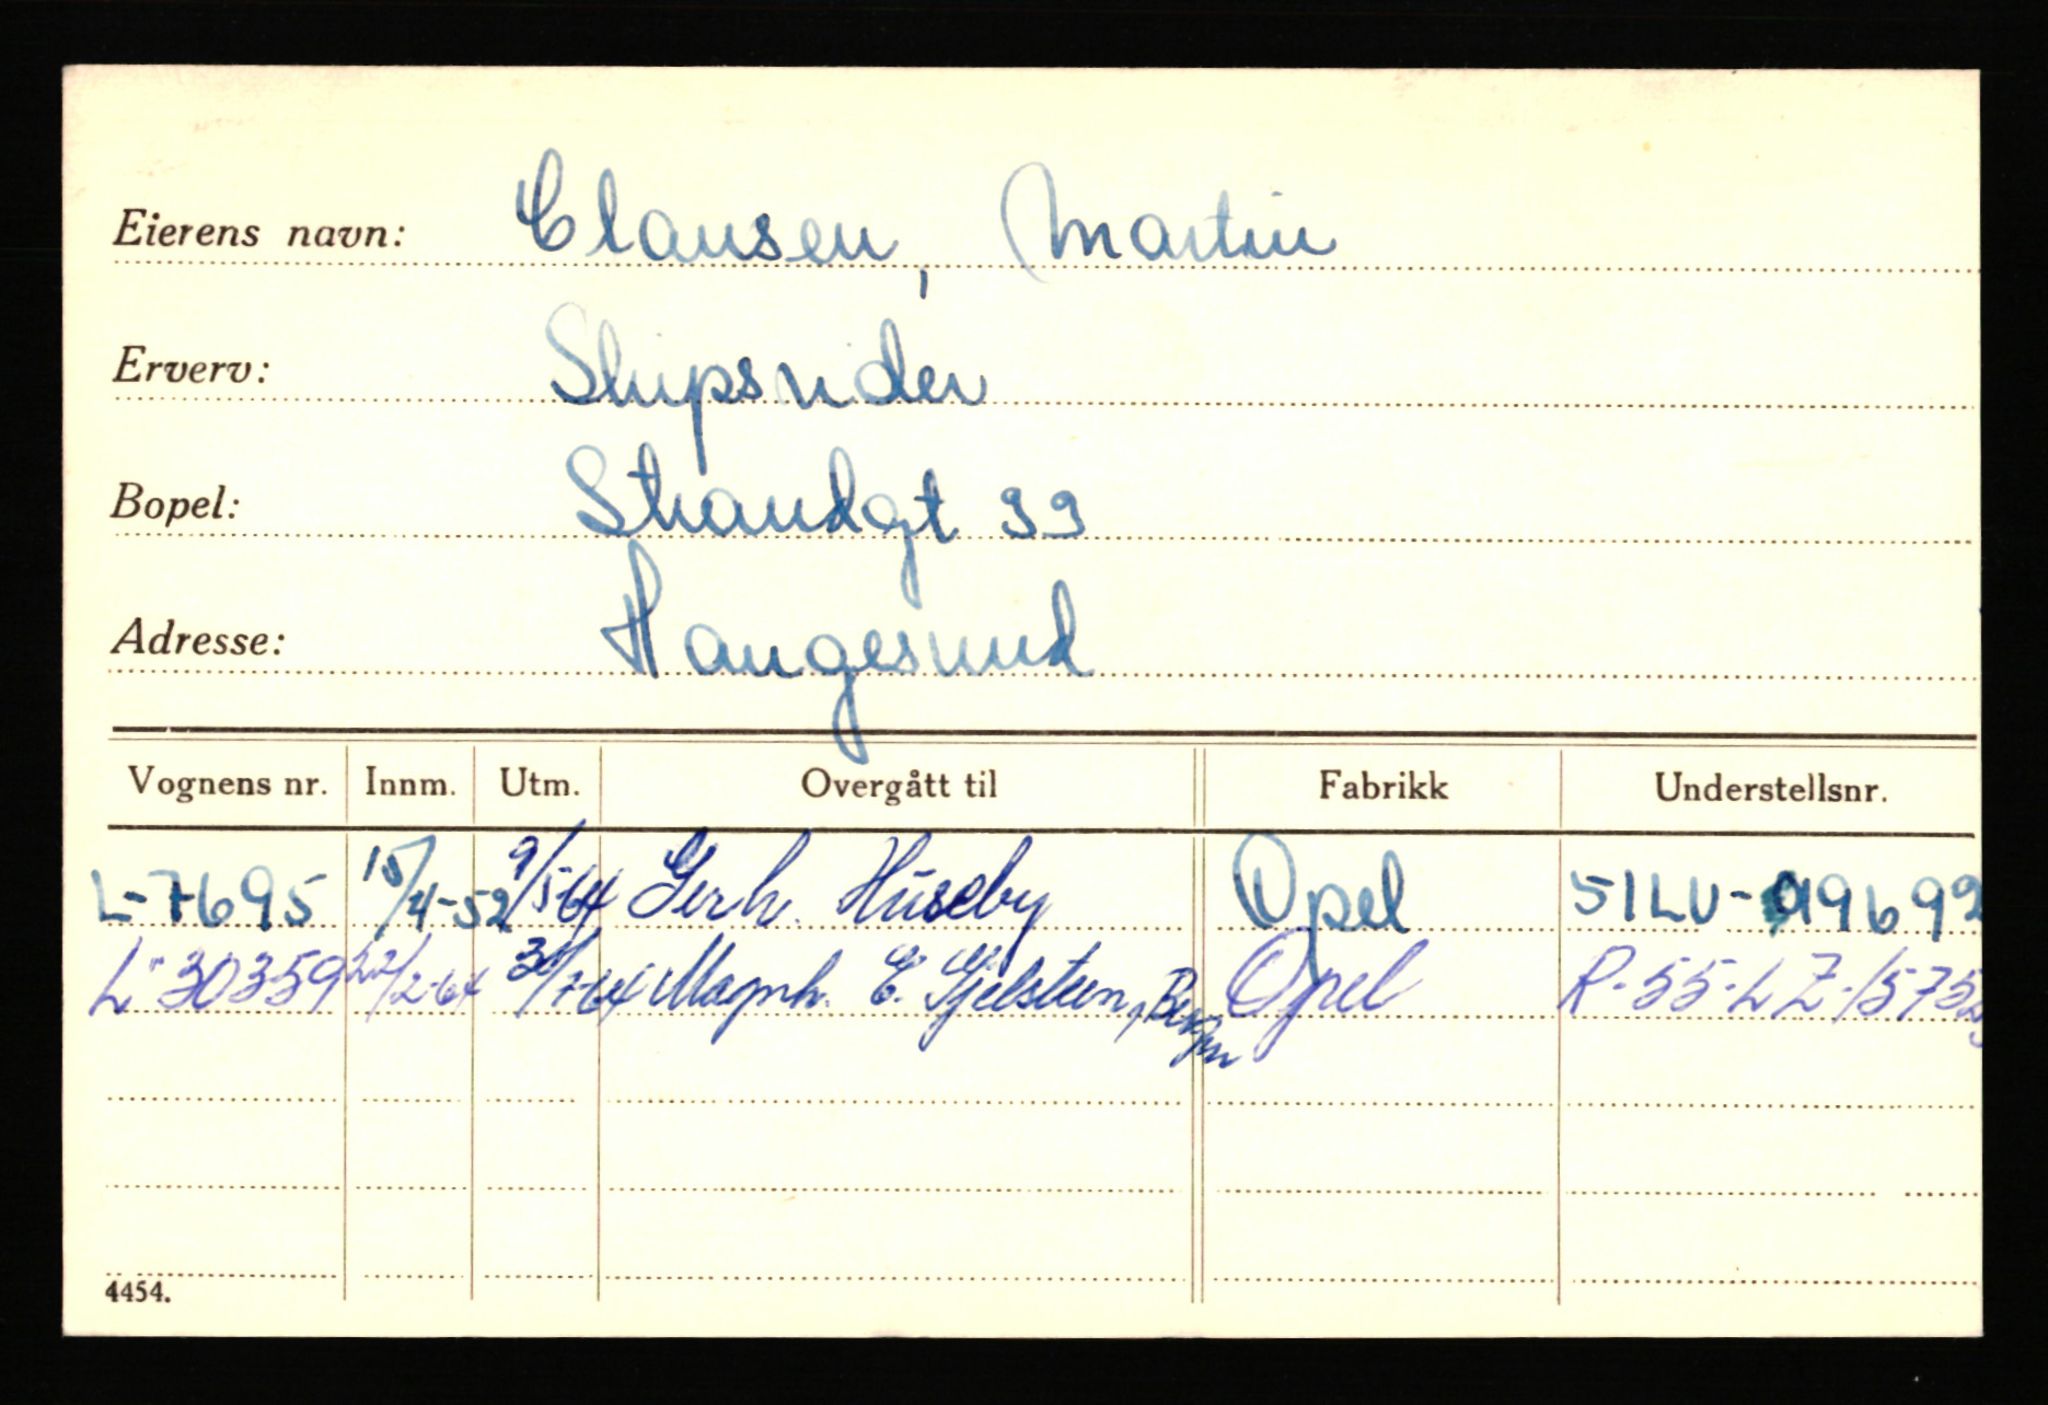 Eierens navn: Clausen, Martin
Erverv: Skipsreder
Bopel: Strandgt 99
Adresse: Haugesund
Vognens nr. Innm. Utm. Overgått til Fabrikk Understellsnr.
L-7695 15/4-52 9/5-64 Gerh. Huseby Opel 51LV-99692
L-30359 22/2-64 /7-64 Magnh. E. Gjelsteen, Bergen Opel R-55-LZ-1575
4454.